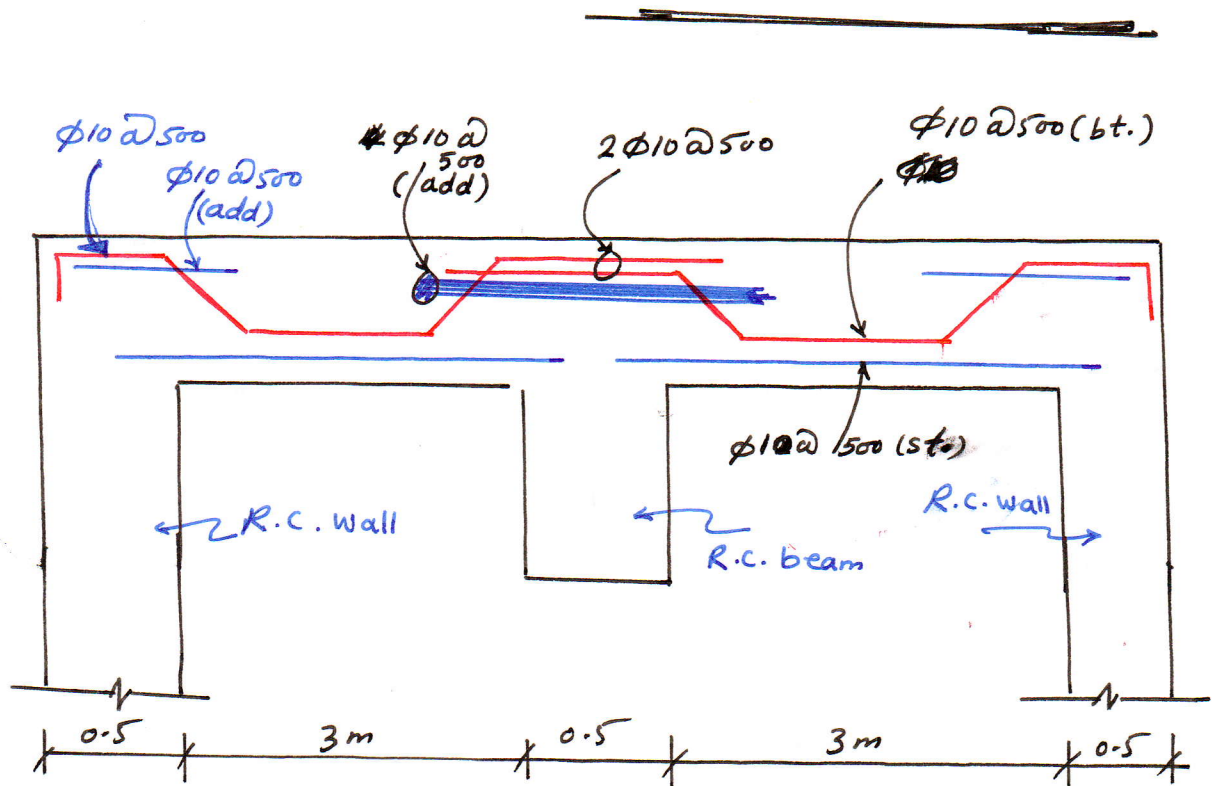 ϕ10 @ 500
ϕ10 @ 500
(add)
ϕ10 @
500
(add)
2ϕ10 @ 500
ϕ10 @ 500 (bt.)
ϕ10 @ 500 (st.)
R.C. wall
R.C. beam
R.C. wall
0.5
3m
0.5
3m
0.5